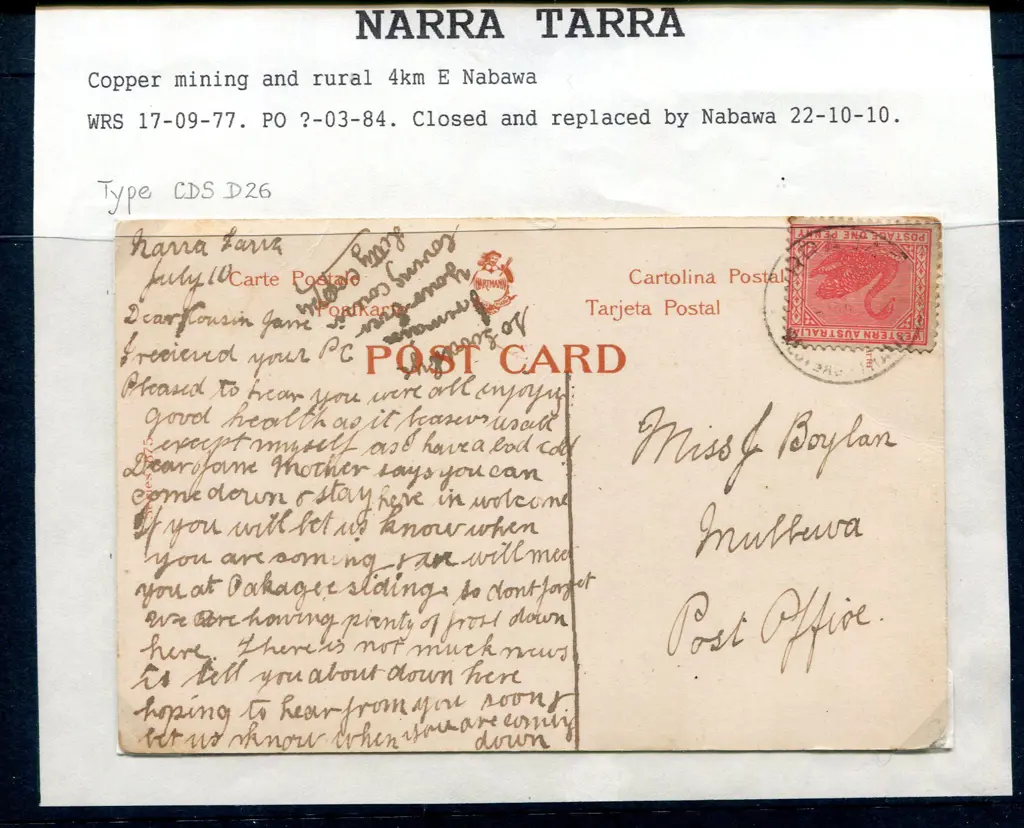 NARRA TARRA
Copper mining and rural 4km E Nabawa
WRS 17-09-77. PO ?-03-84. Closed and replaced by Nabawa 22-10-10.
Type CDS D26
Narra Tarra
July 10
Carte Postale
Postkarte
Cartolina Postale
Tarjeta Postal
HARTMANN
POST CARD
POSTAGE ONE PENNY
WESTERN AUSTRALIA
Dear Cousin Jane
I recieved your PC
Pleased to hear you were all enjoying
good health as it leaves us all
except myself as I have a bad cold
Dear Jane Mother says you can
come down & stay here in wolcome
If you will let us know when
you are coming will meet
you at siding so dont forget
We are having plenty of frost down
here. There is not much news
to tell you about down here
hoping to hear from you soon &
let us know when you are coming
down
So I remain
your
loving cousin
Miss J Boylan
Mullewa
Post Office.